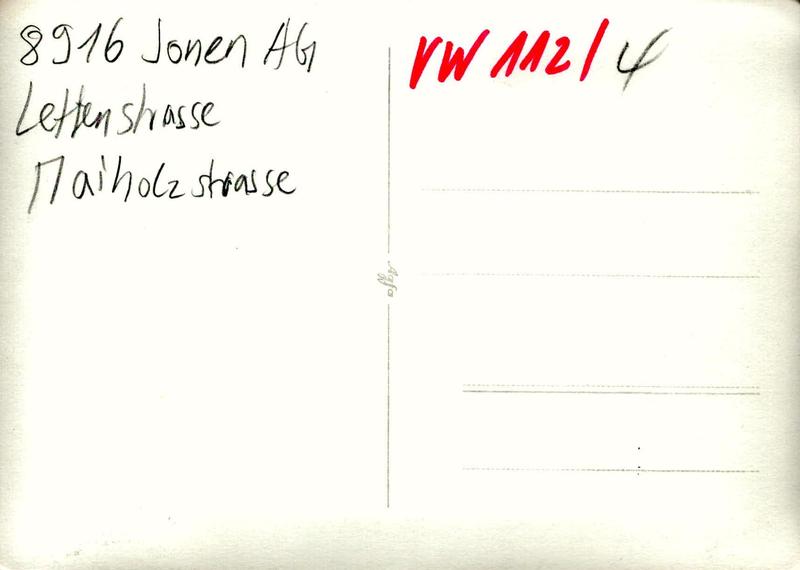 8916 Jonen AG
Lettenstrasse
Maiholzstrasse
VW 112/4
Agfa